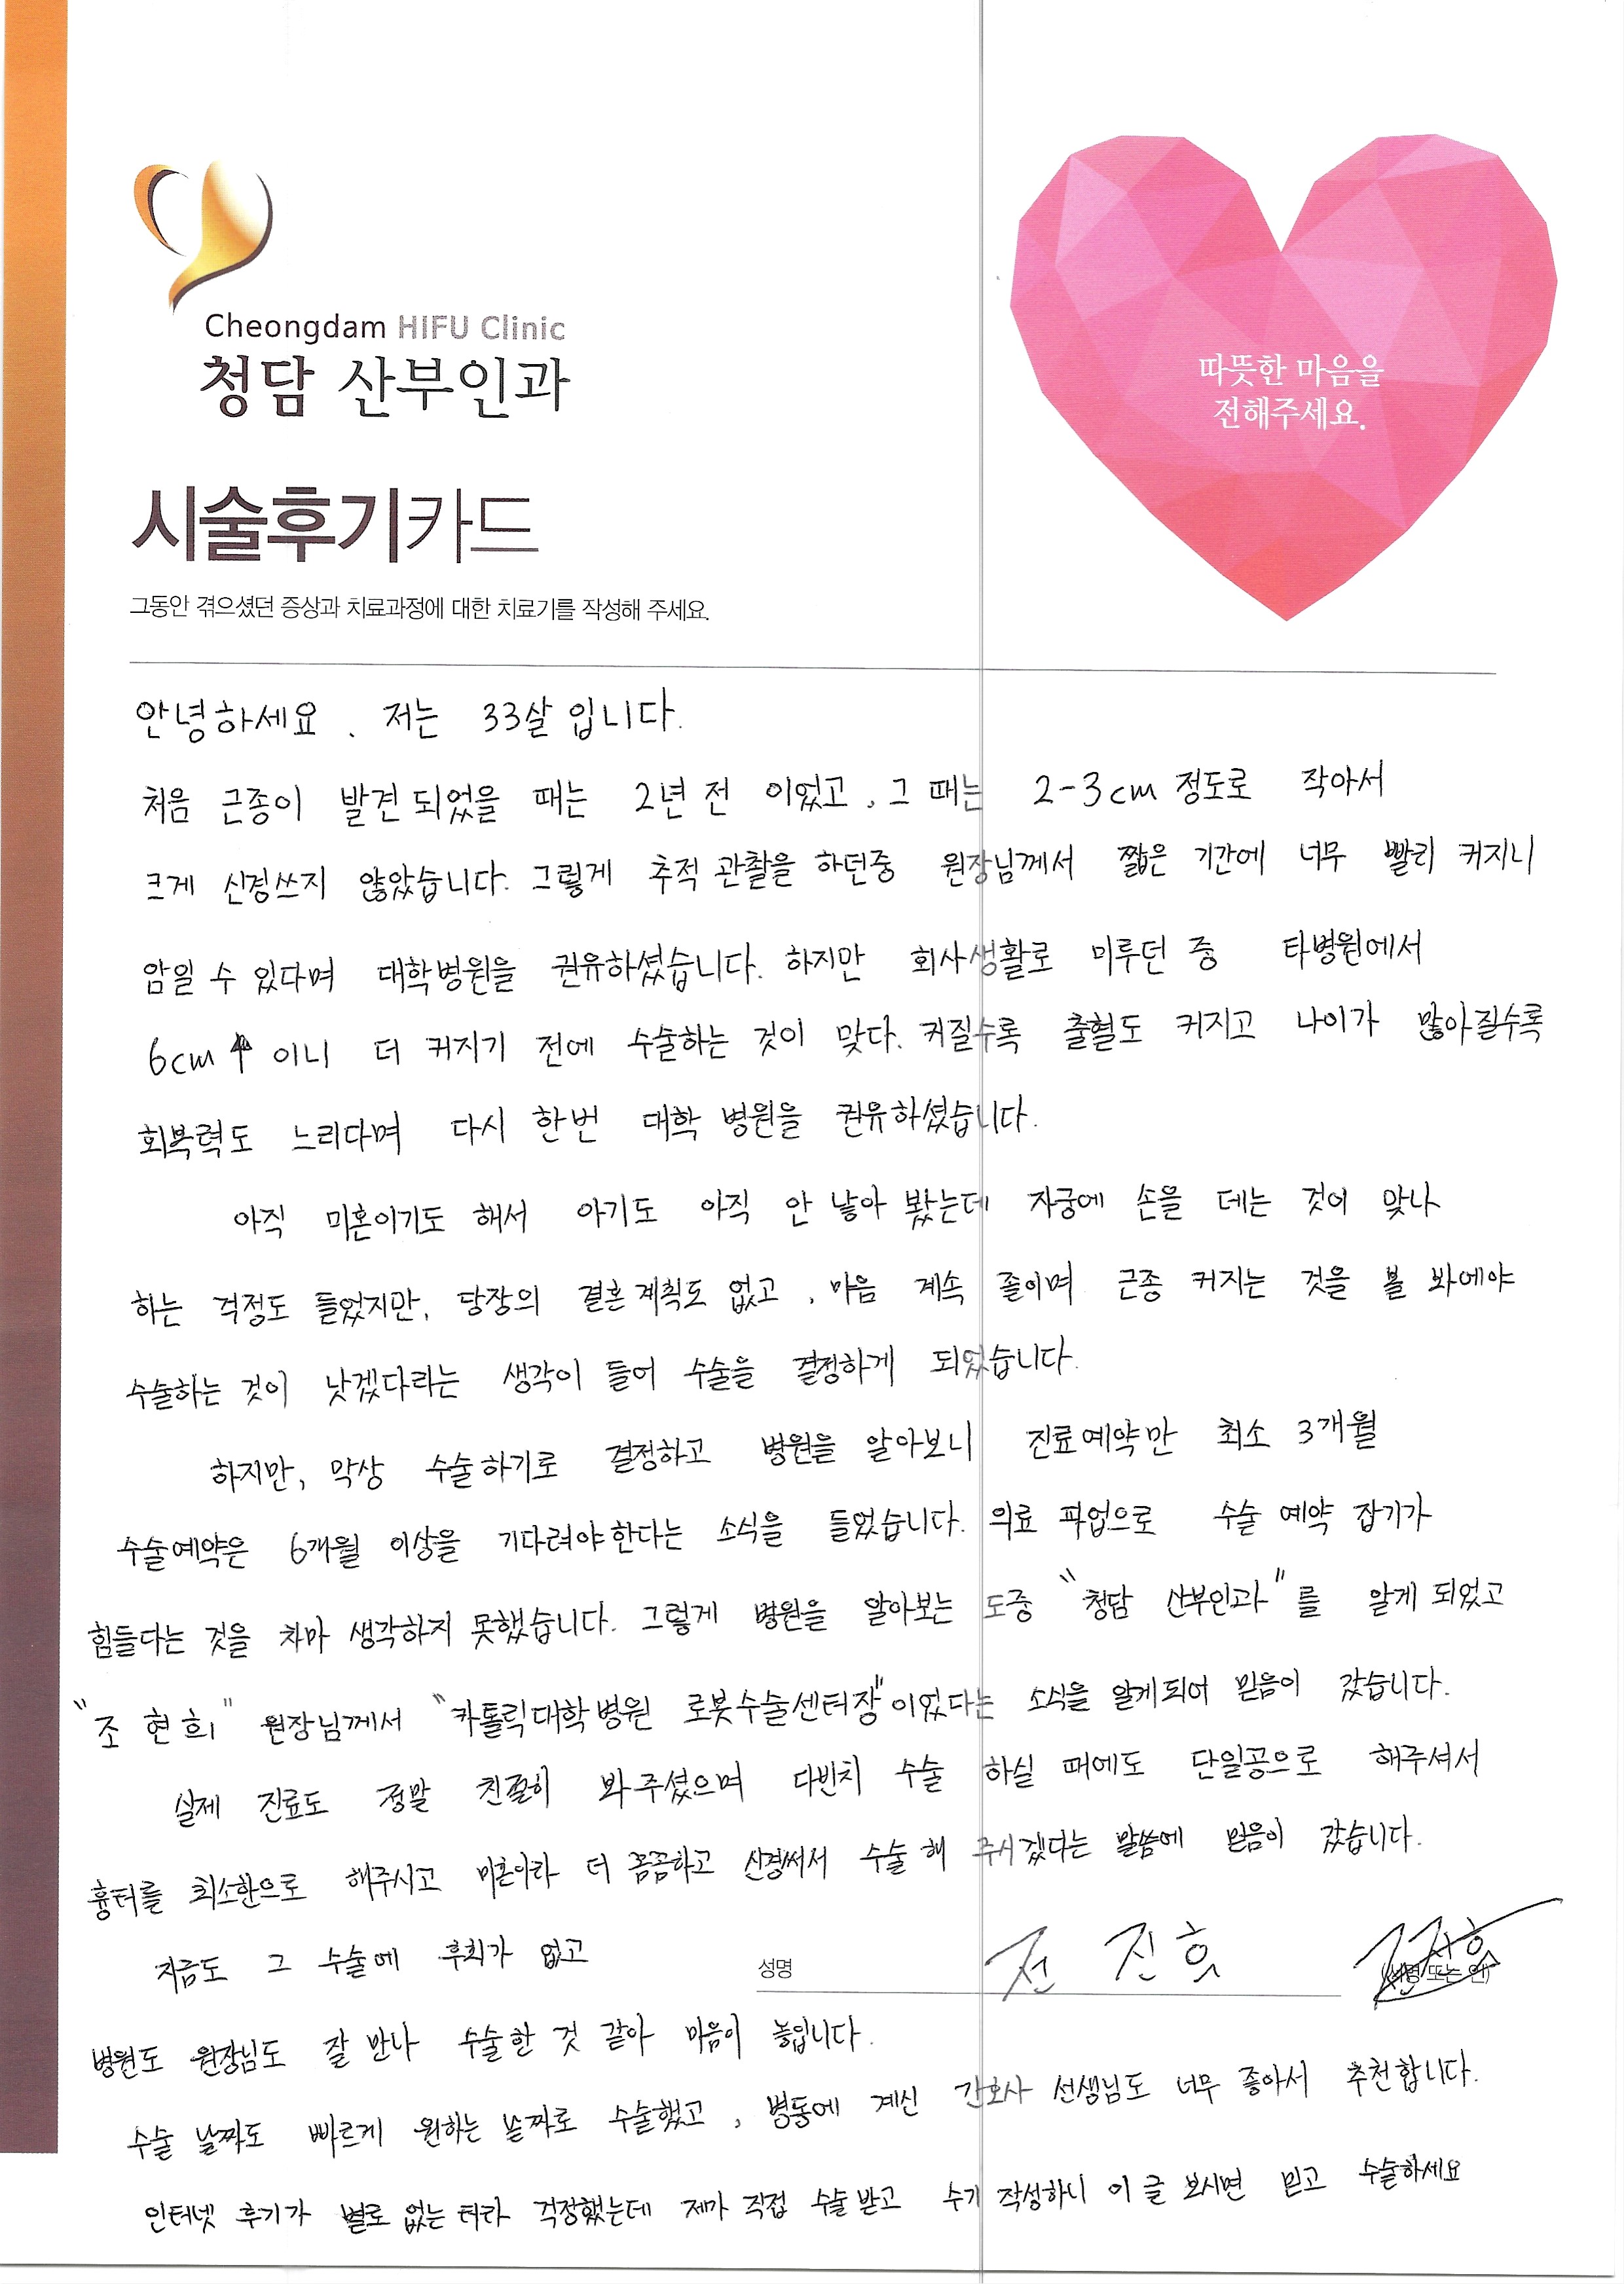 Cheongdam HIFU Clinic
청담 산부인과
따뜻한 마음을
전해주세요.
시술후기카드
그동안 겪으셨던 증상과 치료과정에 대한 치료기를 작성해 주세요.
안녕하세요. 저는 33살 입니다.
처음 근종이 발견 되었을 때는 2년 전 이었고, 그 때는 2-3cm 정도로 작아서
크게 신경쓰지 않았습니다. 그렇게 추적 관찰을 하던중 원장님께서 짧은 기간에 너무 빨리 커지니
암일 수 있다며 대학병원을 권유하셨습니다. 하지만 회사생활로 미루던 중 타병원에서
6cm↑ 이니 더 커지기 전에 수술하는 것이 맞다. 커질수록 출혈도 커지고 나이가 많아질수록
회복력도 느리다며 다시 한번 대학 병원을 권유하셨습니다.
아직 미혼이기도 해서 아기도 아직 안 낳아 봤는데 자궁에 손을 데는 것이 맞나
하는 걱정도 들었지만, 당장의 결혼계획도 없고, 마음 계속 졸이며 근종 커지는 것을 볼 봐에야
수술하는 것이 낫겠다라는 생각이 들어 수술을 결정하게 되었습니다.
하지만, 막상 수술하기로 결정하고 병원을 알아보니 진료예약만 최소 3개월
수술예약은 6개월 이상을 기다려야한다는 소식을 들었습니다. 의료 파업으로 수술 예약 잡기가
힘들다는 것을 차마 생각하지 못했습니다. 그렇게 병원을 알아보는 도중 "청담 산부인과"를 알게 되었고
"조 현희" 원장님께서 "카톨릭대학병원 로봇수술센터장"이었다는 소식을 알게되어 믿음이 갔습니다.
실제 진료도 정말 친절히 봐주셨으며 다빈치 수술 하실 때에도 단일공으로 해주셔서
흉터를 최소한으로 해주시고 미혼이라 더 꼼꼼하고 신경써서 수술 해 주시겠다는 말씀에 믿음이 갔습니다.
지금도 그 수술에 후회가 없고
성명 전 진호 (서명 또는 인)
병원도 원장님도 잘 만나 수술한 것 같아 마음이 놓입니다.
수술 날짜도 빠르게 원하는 날짜로 수술했고, 병동에 계신 간호사 선생님도 너무 좋아서 추천합니다.
인터넷 후기가 별로 없는 터라 걱정했는데 제가 직접 수술받고 수기 작성하니 이 글 보시면 믿고 수술하세요